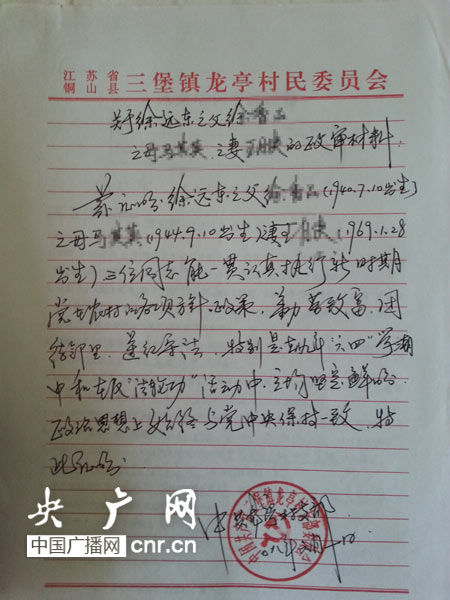 江苏省铜山县三堡镇龙亭村民委员会
关于徐远东之父徐
之母马 之妻 的政审材料
兹证明徐远东之父徐 (1940.7.10出生)
之母马 (1944.9.10出生)妻王 (1969.1.28
出生)三位同志能一贯认真执行新时期
党在农村的各项方针政策,勤劳致富,团
结邻里,遵纪守法,特别是在 "六四"学潮
中和在反"法轮功"活动中,立场坚定鲜明
政治思想上始终与党中央保持一致,特
此证明
中共 龙亭村支部
央广网
中国广播网 cnr.cn